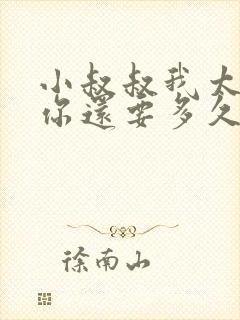 小叔叔我太
你還要多久
徐南山